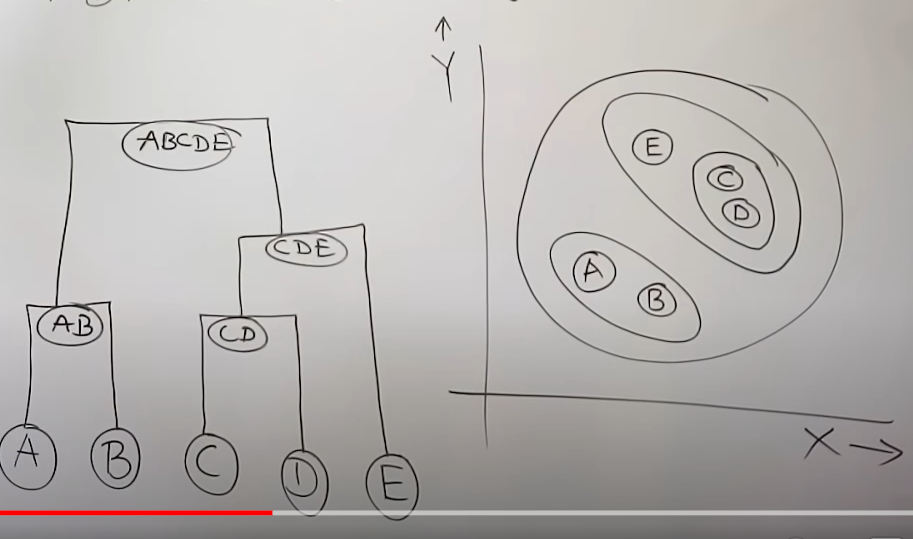 ABCDE
CDE
AB
CD
A
B
C
D
E
Y
E
C
D
A
B
X